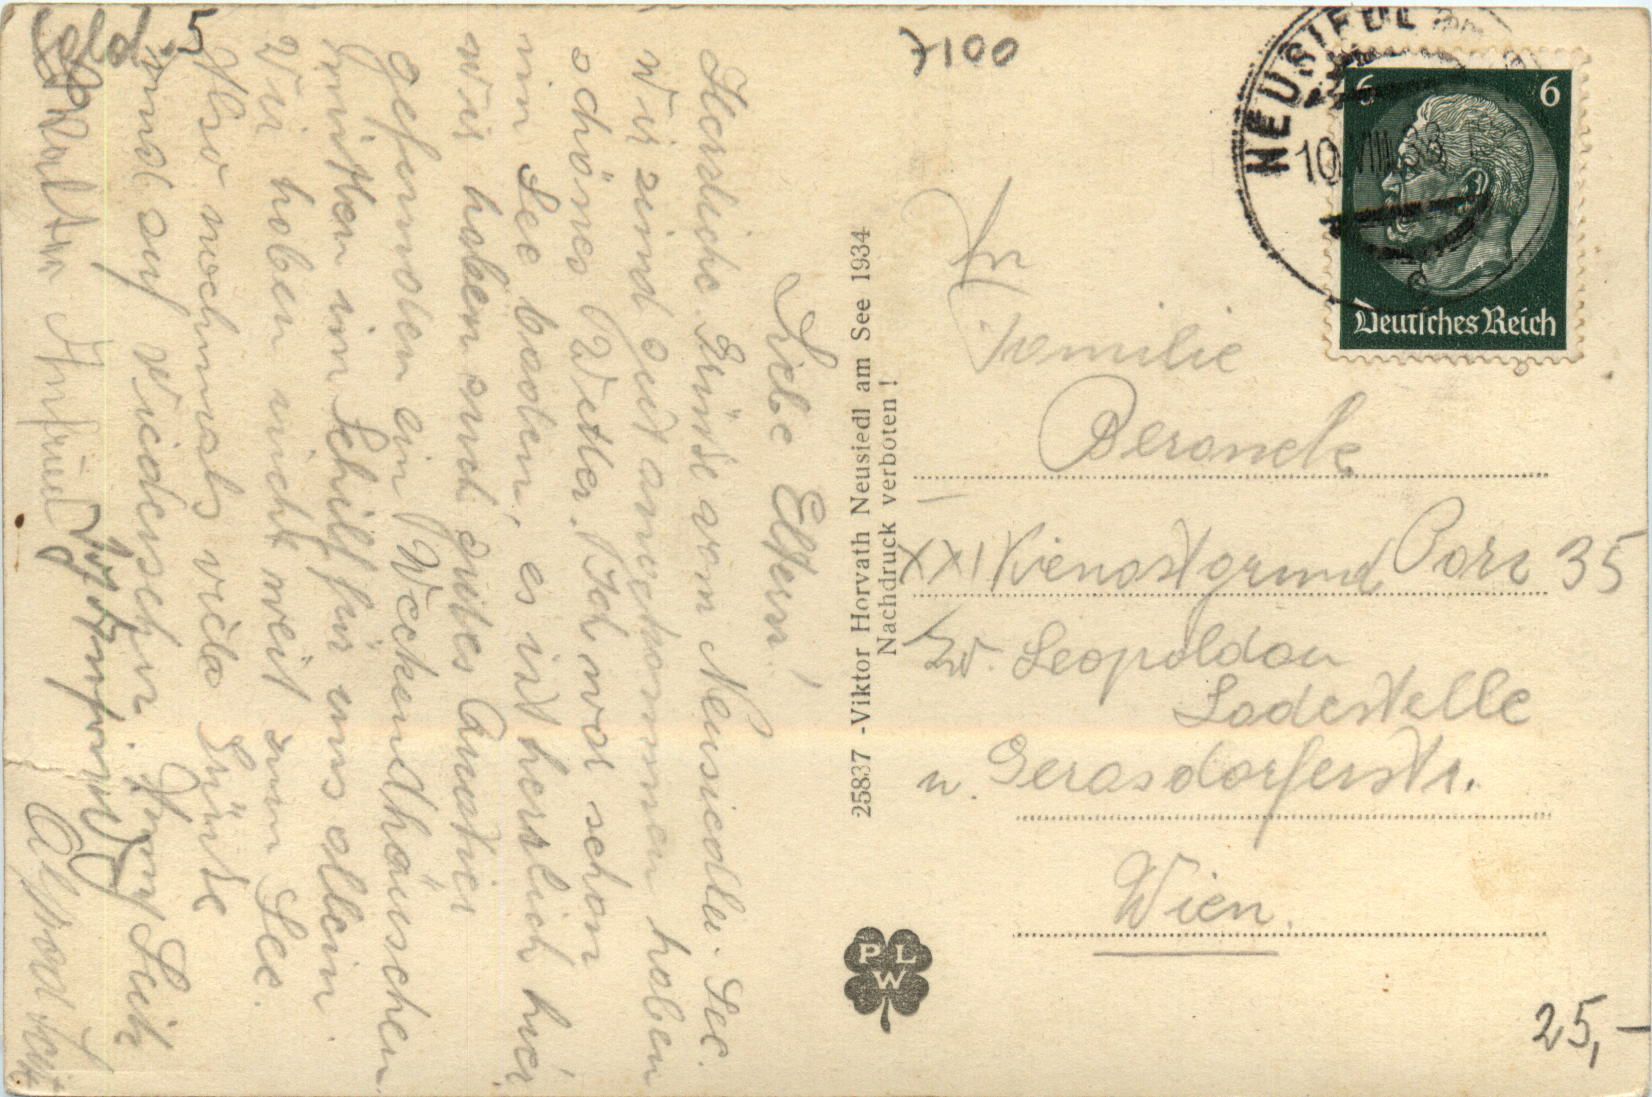 Liebe Eltern!
Herzliche Grüße vom Neusiedler-See.
Wir sind gut angekommen haben
schönes Wetter. Ich war schon
im See baden, es ist herrlich hier
wir haben auch gutes Quartier
gefunden ein Weekendhäuschen
mitten im Schilf für uns allein.
Wir haben nicht weit zum See.
Also nochmals viele Grüße
und auf Wiedersehen
Alfred
5
25837 - Viktor Horvath Neusiedl am See 1934
Nachdruck verboten!
PLW
7100
NEUSIEDL
10.VIII.38
6 6
Deutsches Reich
An
Familie
Beranek
XXI Kienastgrund Parz 35
Zw. Leopoldau
Ladestelle
u. Gerasdorferstr.
Wien.
25,-